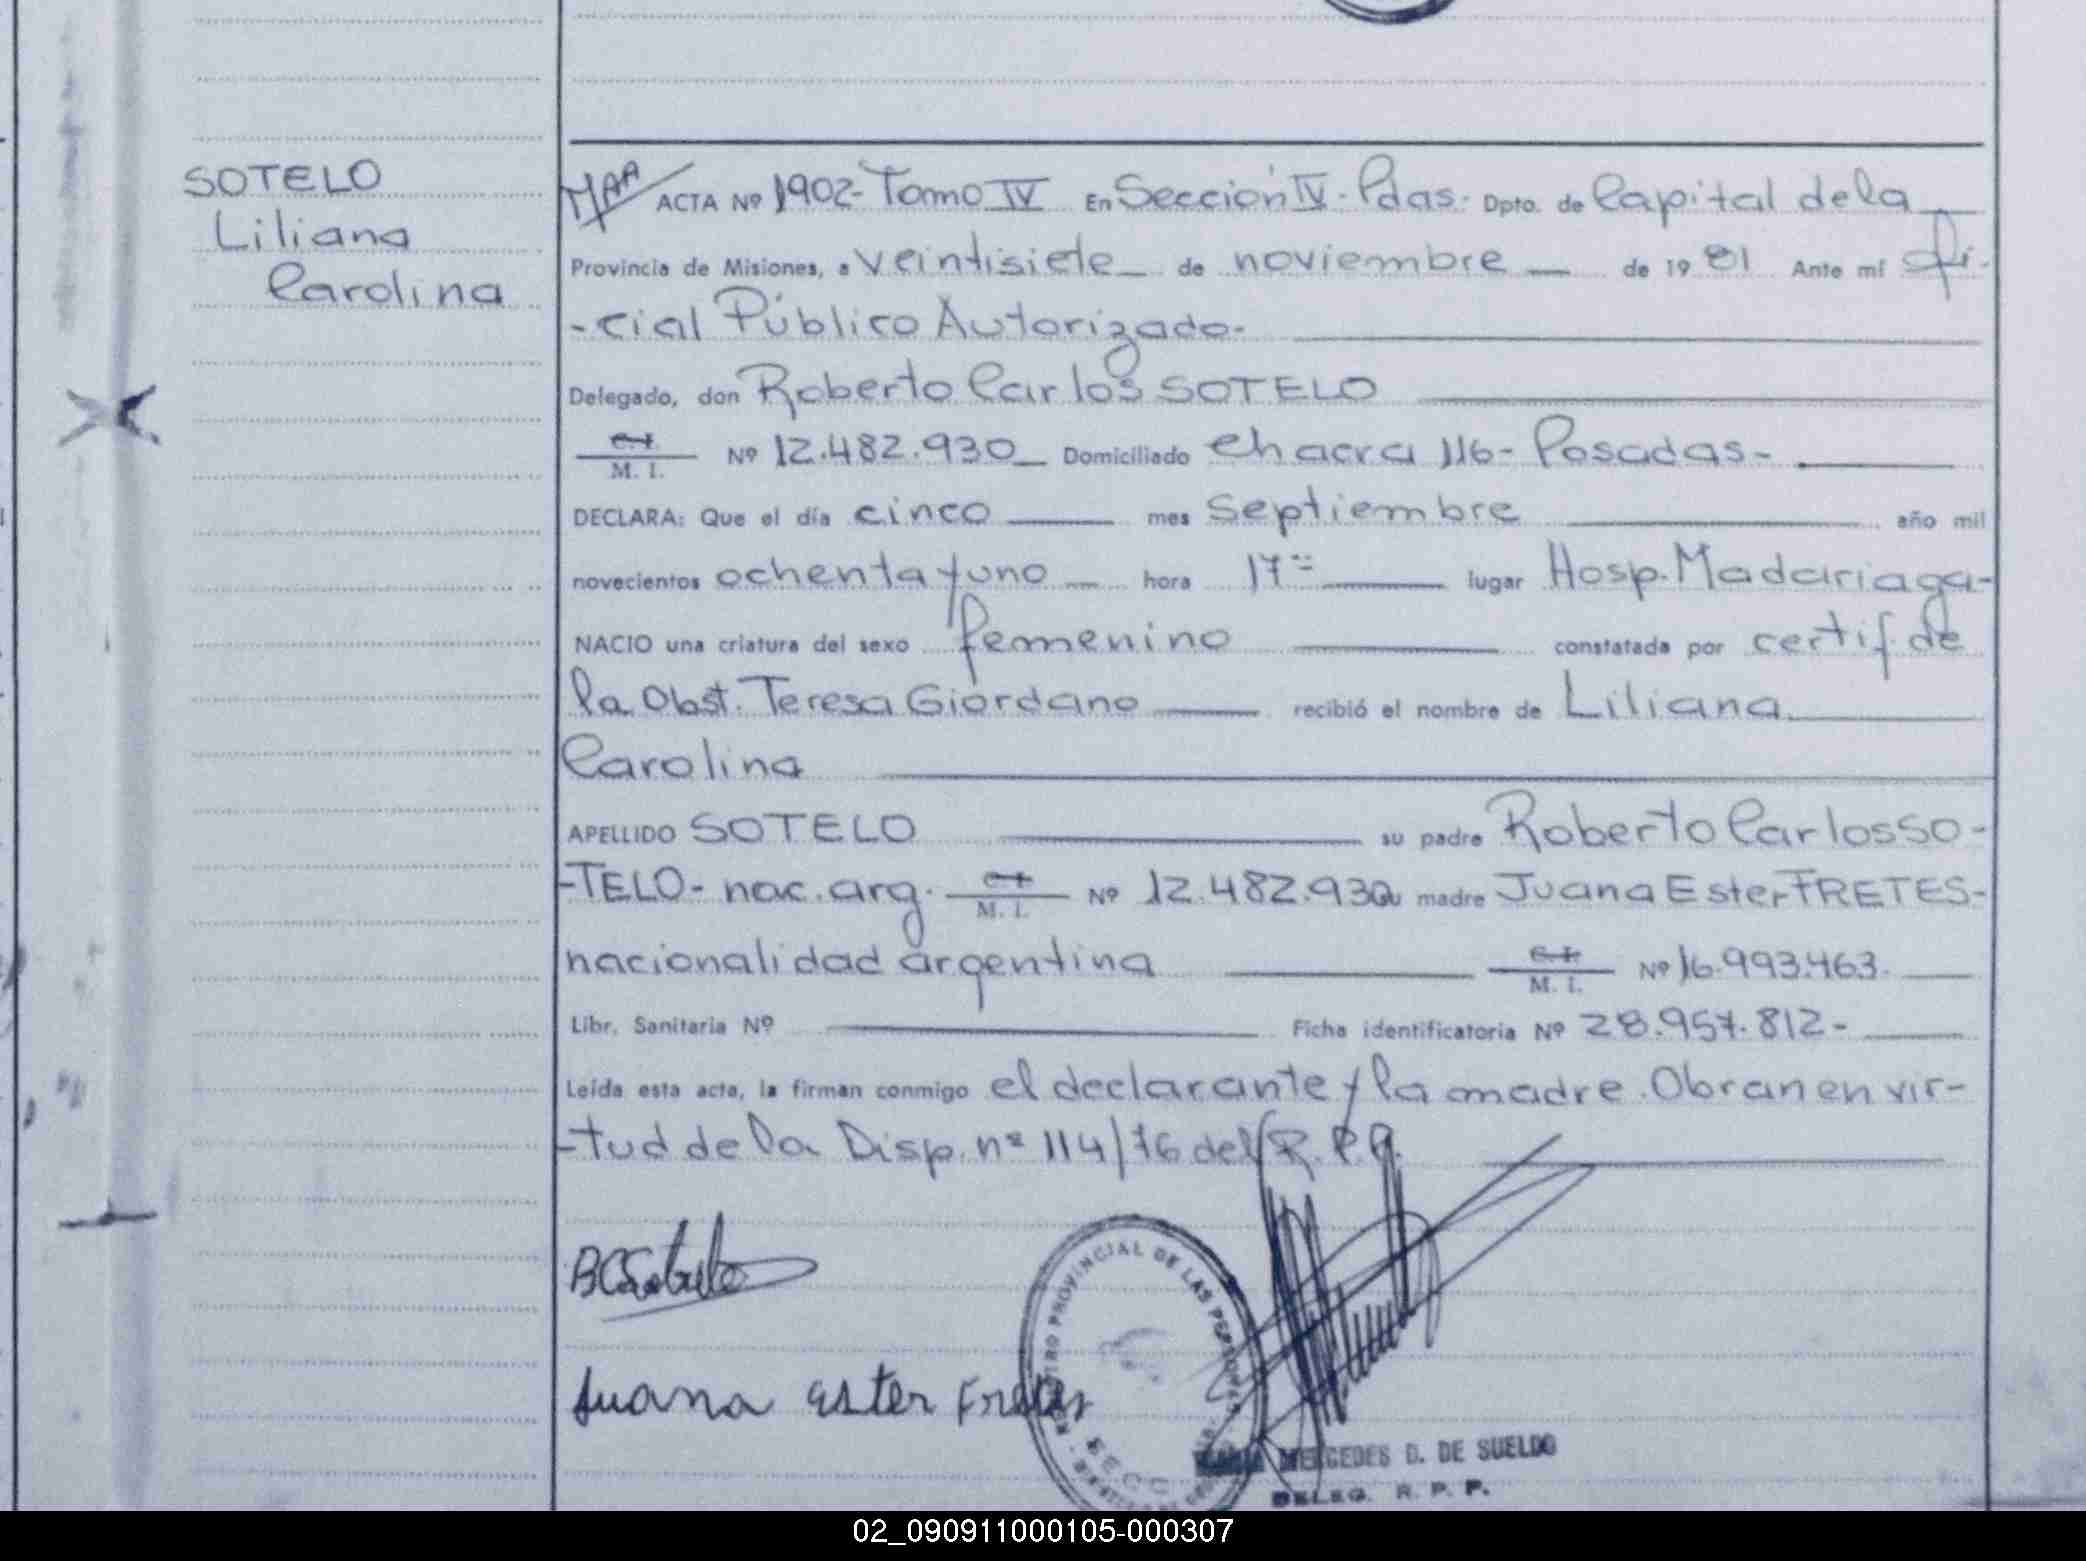 SOTELO
Liliana
Carolina
ACTA Nº 1902- Tomo IV En Sección IV- Pdas- Dpto. de Capital de la
Provincia de Misiones, a veintisiete de noviembre de 1981 Ante mí Ofi-
-cial Público Autorizado-
Delegado, don Roberto Carlos SOTELO
M. I. Nº 12.482.930 Domiciliado Chacra 116- Posadas-
DECLARA: Que el día cinco mes septiembre año mil
novecientos ochenta y uno hora 17 lugar Hosp. Madariaga-
NACIO una criatura del sexo femenino constatada por certif. de
la Obst. Teresa Giordano recibió el nombre de Liliana
Carolina
APELLIDO SOTELO su padre Roberto Carlos SO-
-TELO- nac. arg. M. I. Nº 12.482.930 madre Juana Ester FRETES-
nacionalidad argentina M. I. Nº 16.993.463-
Libr. Sanitaria Nº Ficha identificatoria Nº 28.957.812-
Leída esta acta, la firman conmigo el declarante y la madre. Obran en vir-
-tud de la Disp. nº 114/76 del R.P.P.
RCSotelo
Juana Ester Fretes
PROVINCIAL DE LAS PERSONAS
MERCEDES D. DE SUELDO
DELEG. R. P. P.
02_090911000105-000307